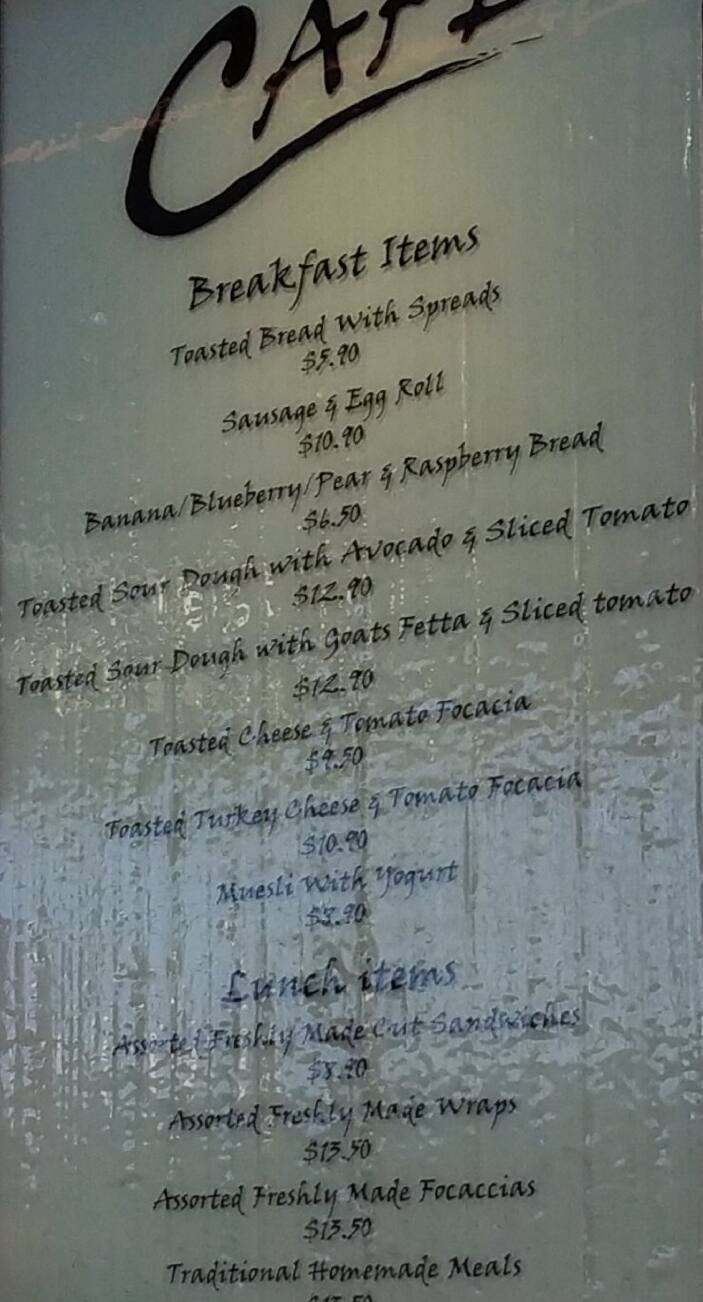 CAFE
Breakfast Items
Toasted Bread With Spreads
$5.90
Sausage & Egg Roll
$10.90
Banana/Blueberry/Pear & Raspberry Bread
$6.50
Toasted Sour Dough with Avocado & Sliced Tomato
$12.90
Toasted Sour Dough with Goats Fetta & Sliced tomato
$12.90
Toasted Cheese & Tomato Focacia
$9.50
Toasted Turkey Cheese & Tomato Focacia
$10.90
Muesli With Yogurt
$8.90
Lunch items
Assorted Freshly Made Cut Sandwiches
$8.90
Assorted Freshly Made Wraps
$13.50
Assorted Freshly Made Focaccias
$13.50
Traditional Homemade Meals